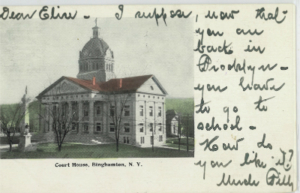 Dear Elsie - I suppose, now that
you are
back in
Brooklyn -
you have
to go to
school -
How do
you like it?
Uncle Bill
Court House, Binghamton, N. Y.